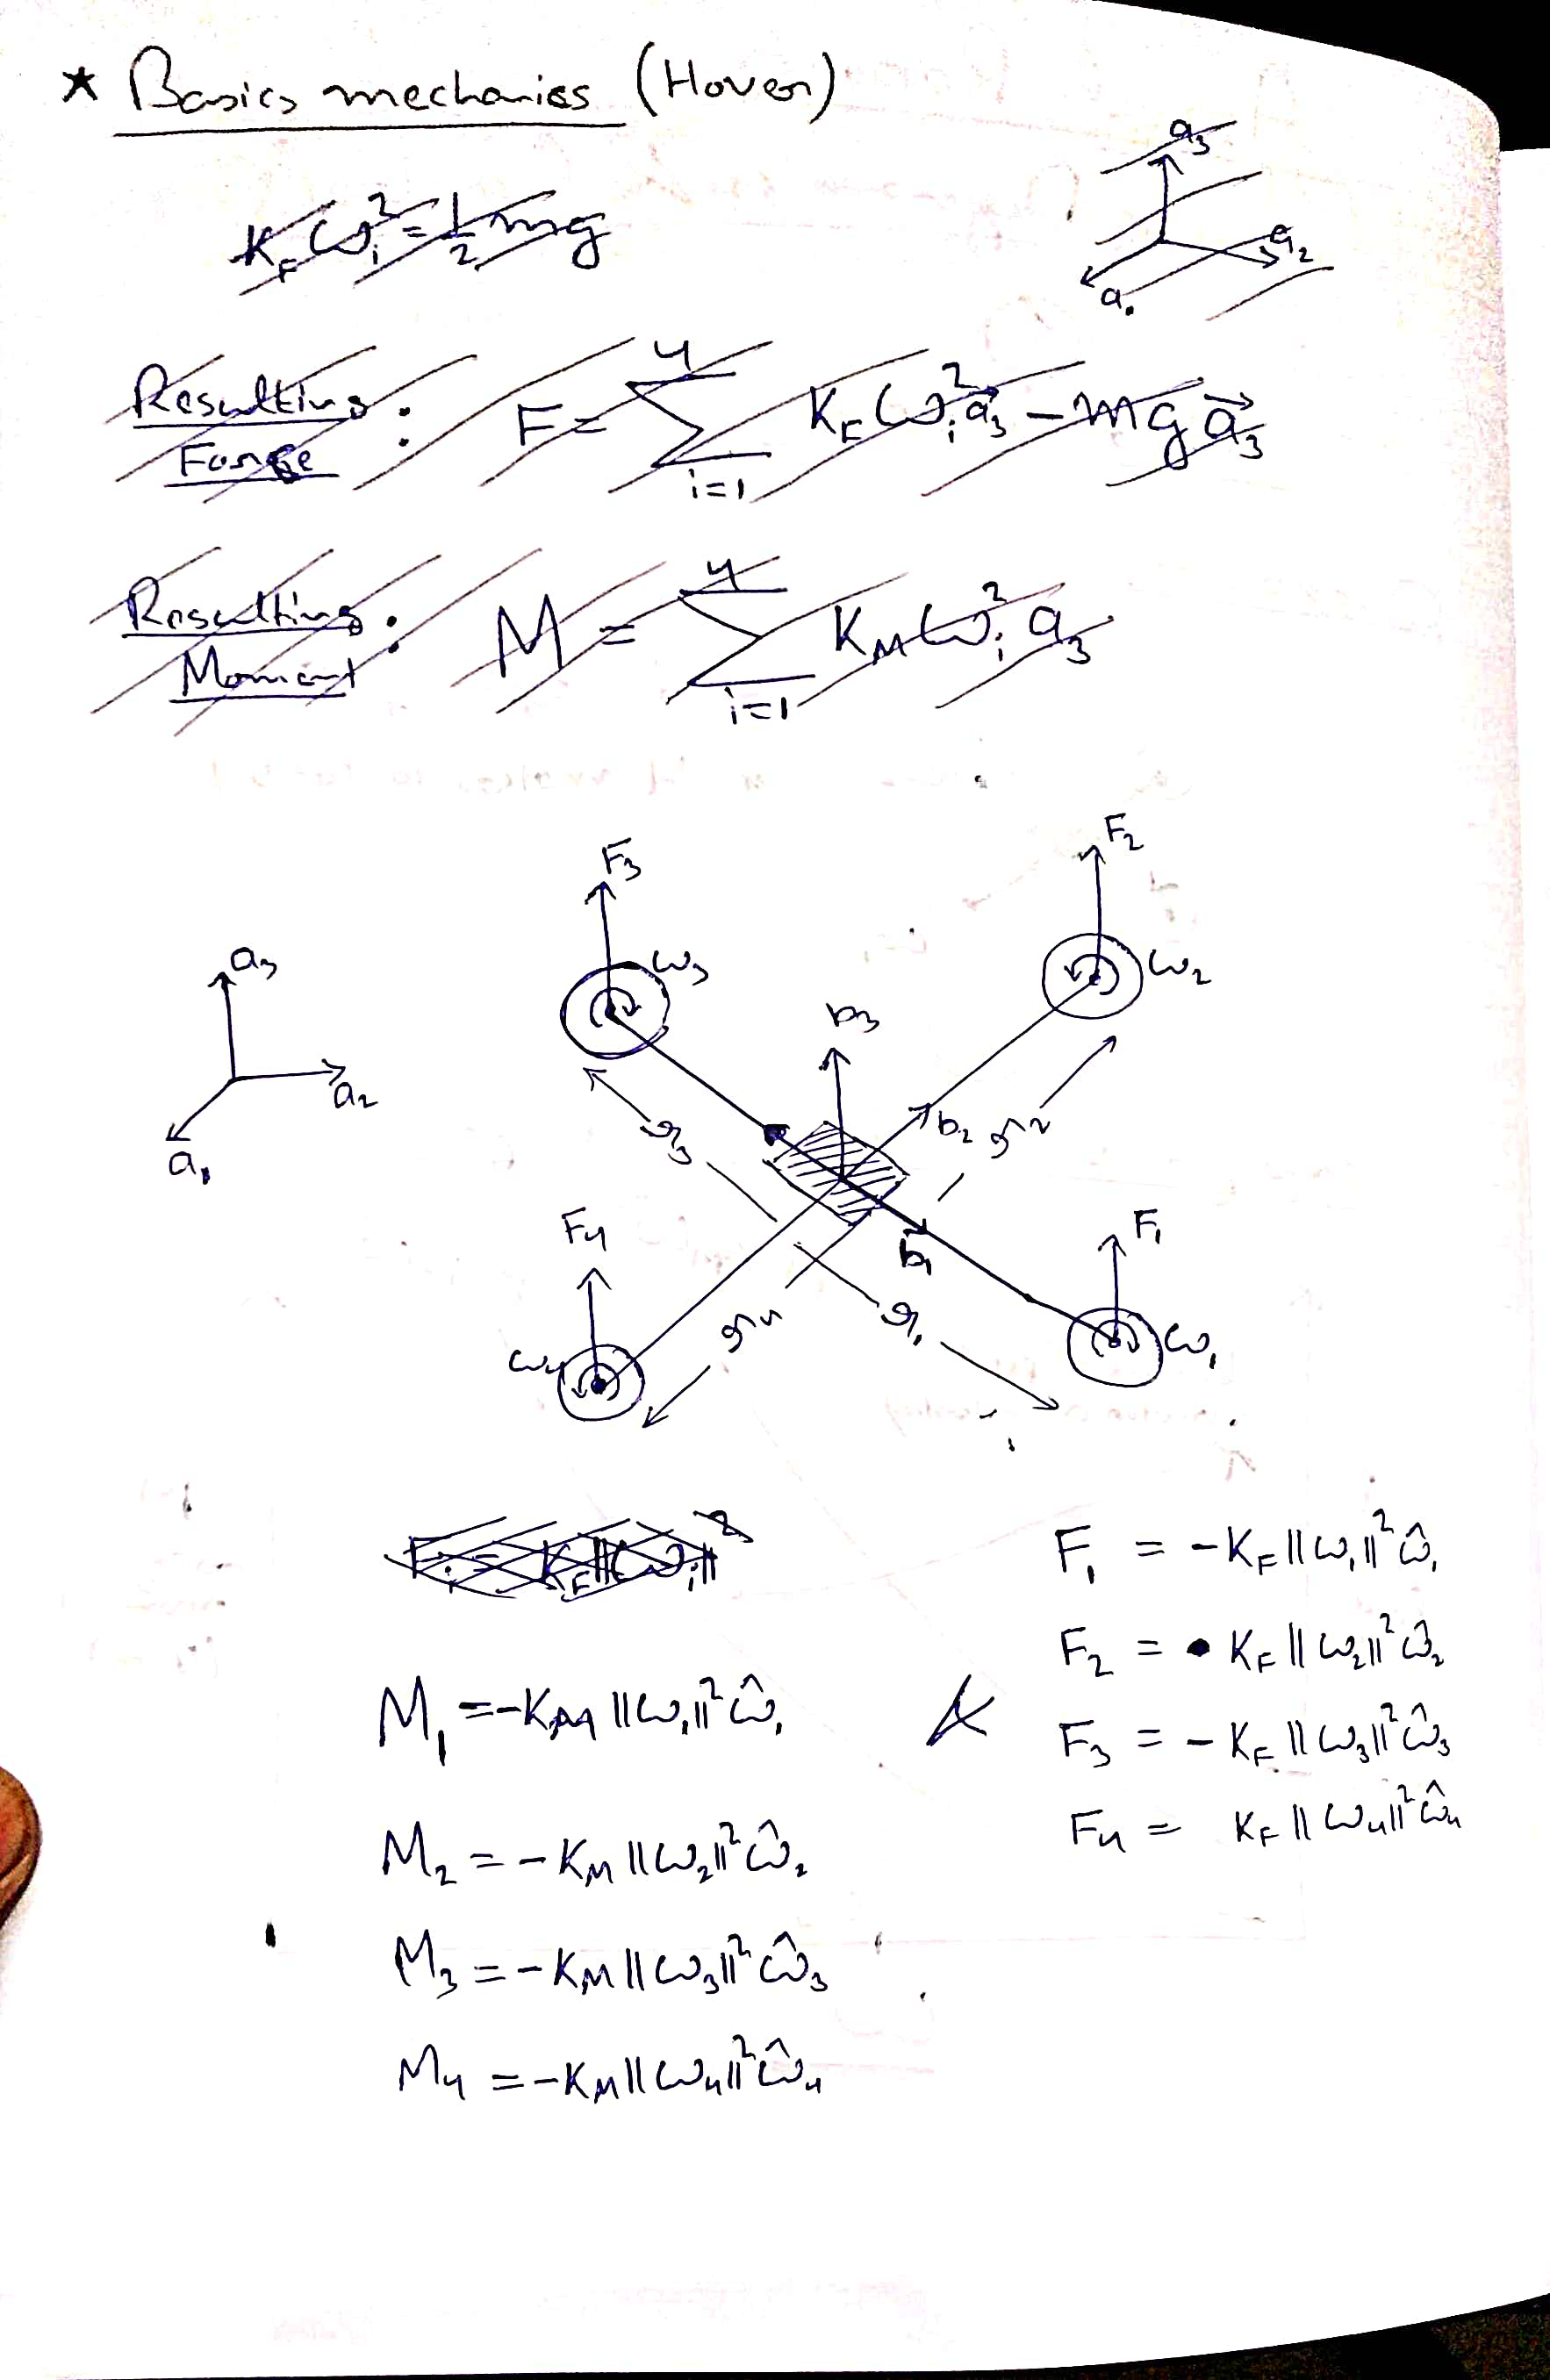 ★ Basics mechanics (Hover)
K_F ω_i² = 1/2 mg
a₃
a₂
a₁
Resulting Force : F = Σ_{i=1}^{4} K_F ω_i² a⃗₃ − mg a⃗₃
Resulting Moment : M = Σ_{i=1}^{4} K_M ω_i² a₃
F₃
F₂
ω₃
ω₂
a₃
b₃
a₂
b₂
r₂
r₃
a₁
F₄
F₁
b₁
r₄
r₁
ω₄
ω₁
F_i = K_F ||ω_i||²
F₁ = -K_F ||ω₁||² ω̂₁
F₂ = K_F ||ω₂||² ω̂₂
M₁ = -K_M ||ω₁||² ω̂₁ &
F₃ = - K_F ||ω₃||² ω̂₃
F₄ = K_F ||ω₄||² ω̂₄
M₂ = - K_M ||ω₂||² ω̂₂
M₃ = - K_M ||ω₃||² ω̂₃
M₄ = - K_M ||ω₄||² ω̂₄